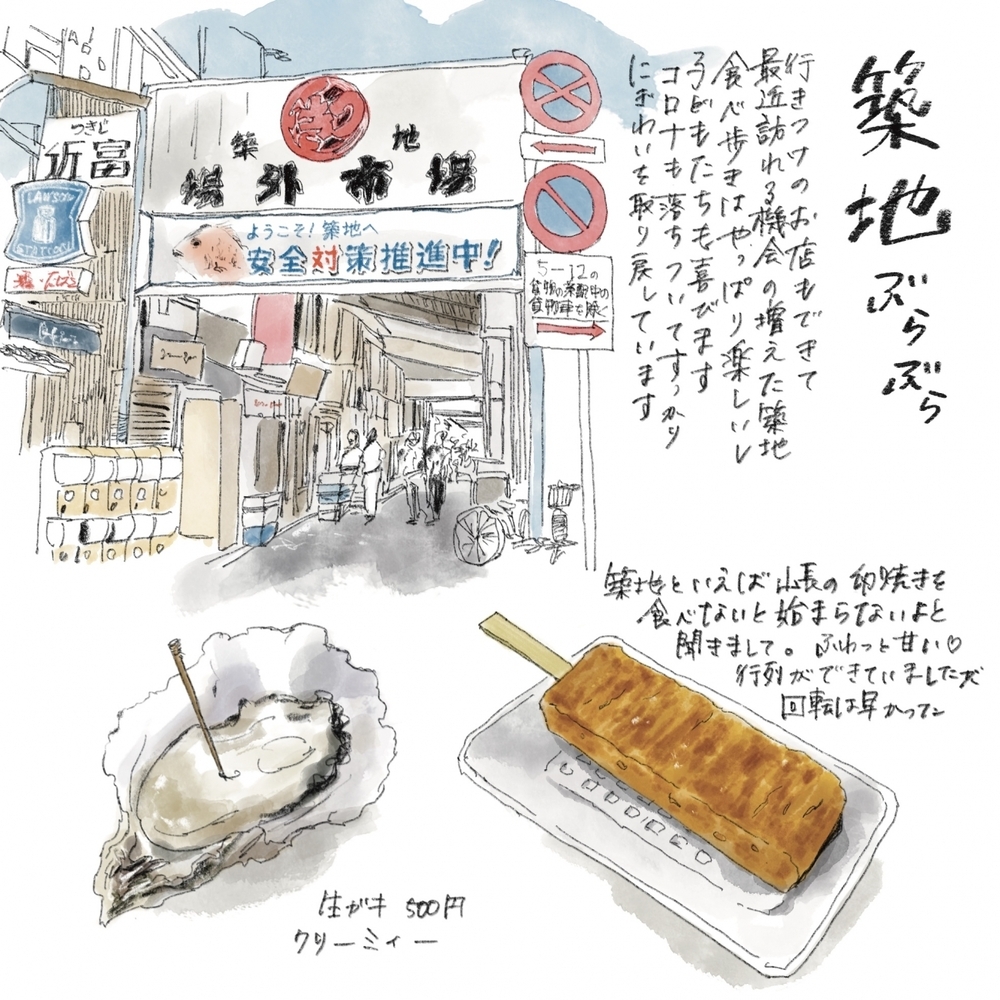 築地ぶらぶら
行きつけのお店もできて
最近訪れる機会の増えた築地
食べ歩きはやっぱり楽しいし
子どもたちも喜びます
コロナも落ちついてすっかり
にぎわいを取り戻しています
つきじ
近富
LAWSON
STATION
築地
場外市場
ようこそ!築地へ
安全対策推進中!
5-12の
貨物の集配中の
貨物車を除く
築地といえば山長の卵焼きを
食べないと始まらないよと
聞きまして。ふわっと甘い♡
行列ができていましたが
回転は早かったです
生ガキ 500円
クリーミィー